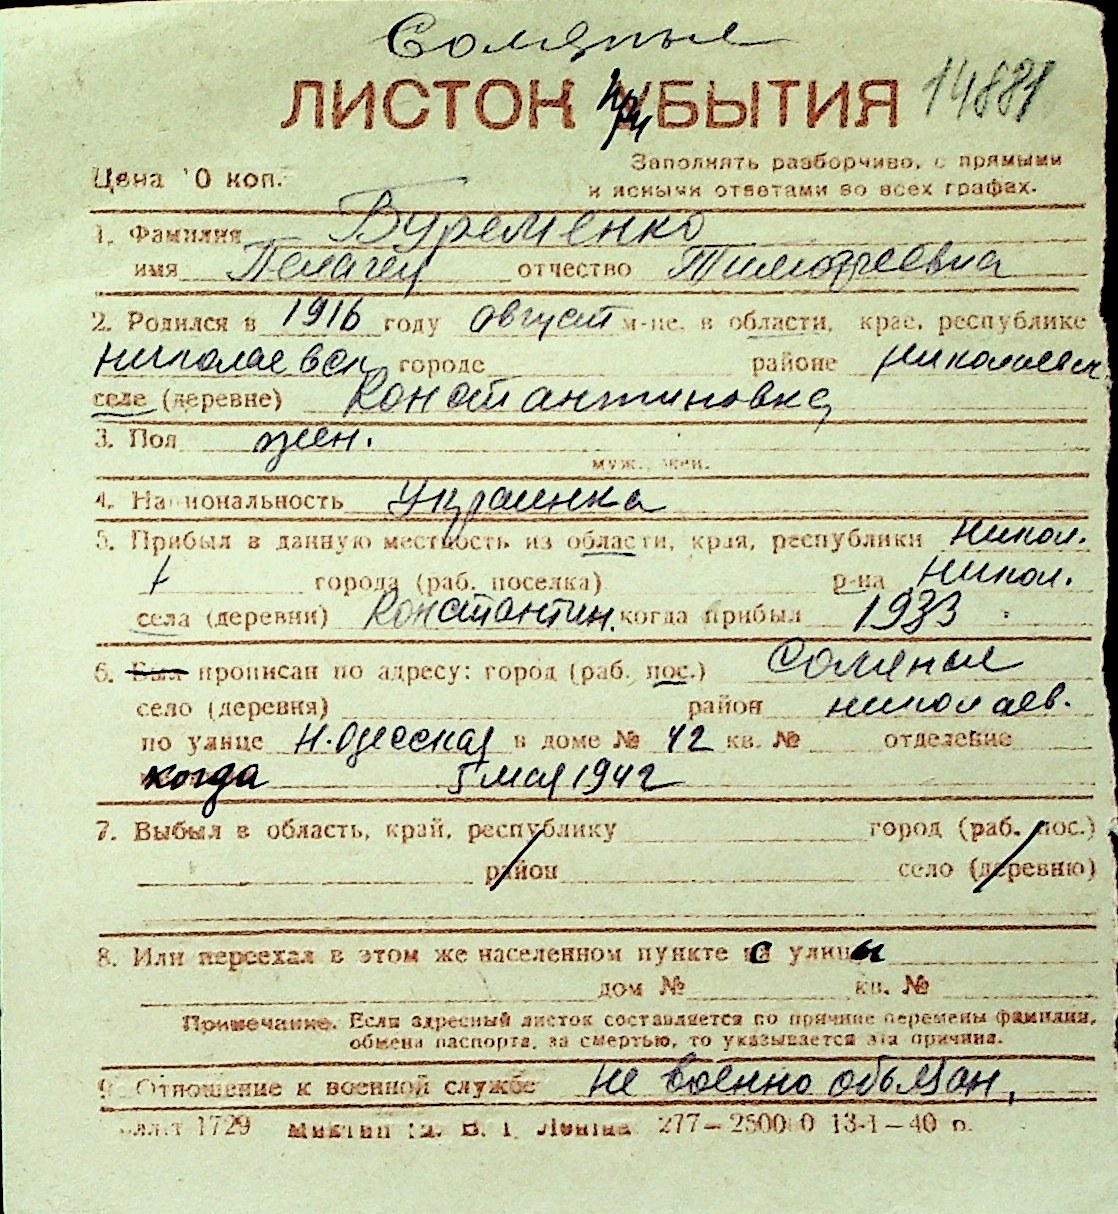 Соляные
ЛИСТОК при УБЫТИЯ 14881
Цена 10 коп.
Заполнять разборчиво, с прямыми
и ясными ответами во всех графах.
1. Фамилия Буременко
имя Пелагея отчество Тимофеевна
2. Родился в 1916 году август м-це, в области, крае, республике
Николаевск городе районе Николаевск
селе (деревне) Константиновка
3. Пол жен.
муж., жен.
4. Национальность Украинка
5. Прибыл в данную местность из области, края, республики Никол.
города (раб. поселка) р-на Никол.
села (деревни) Константин. когда прибыл 1933
6. Был прописан по адресу: город (раб. пос.) Соляные
село (деревня) район николаев.
по улице Н. Одесская в доме № 42 кв. № отделение
когда 5 мая 1942
7. Выбыл в область, край, республику город (раб. пос.)
район село (деревню)
8. Или переехал в этом же населенном пункте с улицы
дом № кв. №
Примечание. Если адресный листок составляется по причине перемены фамилии,
обмена паспорта, за смертью, то указывается эта причина.
9. Отношение к военной службе не военно обязан,
1729 277—2500 0 13-I—40 р.